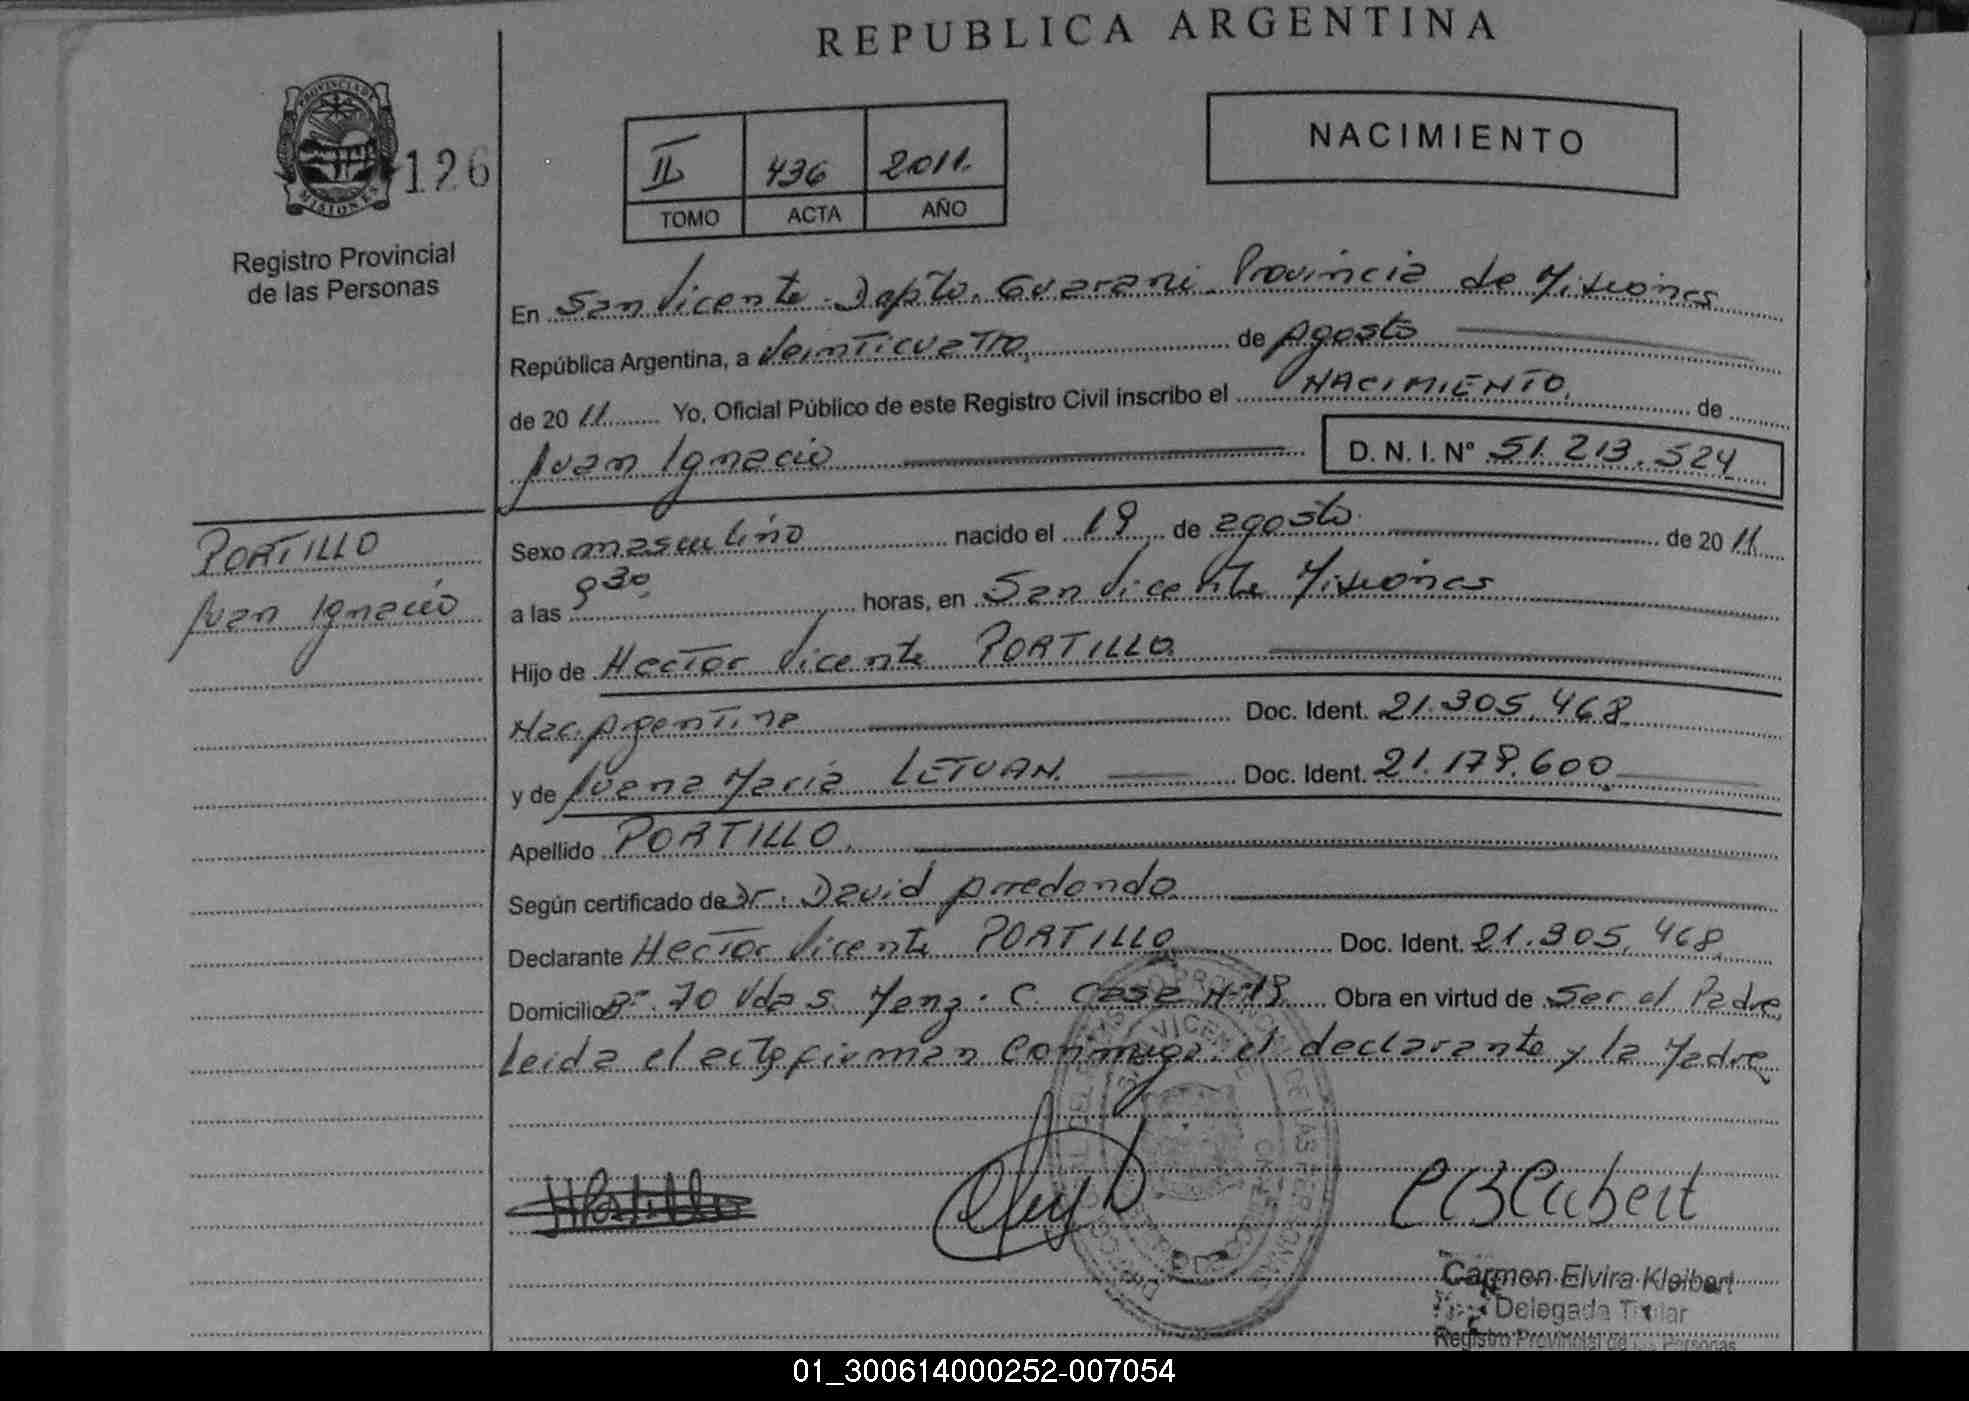 REPUBLICA ARGENTINA
PROVINCIA DE
MISIONES
126
Registro Provincial
de las Personas
II 436 2011.
TOMO ACTA AÑO
NACIMIENTO
En San Vicente. Dapto. Guarani. Provincia de Misiones
República Argentina, a Veinticuatro, de Agosto
de 20 11 Yo, Oficial Público de este Registro Civil inscribo el NACIMIENTO, de
Juan Ignacio D. N. I. Nº 51.213.524
PORTILLO
Juan Ignacio
Sexo masculino nacido el 19 de agosto de 20 11
a las 9 30, horas, en San Vicente Misiones
Hijo de Hector Vicente PORTILLO
Nac. Argentina Doc. Ident. 21.305.468
y de Juana Maria LETUAN. Doc. Ident. 21.179.600
Apellido PORTILLO.
Según certificado de Dr. David Arredondo
Declarante Hector Vicente PORTILLO Doc. Ident. 21.305.468
Domicilio Bº. 70 Vdas. Manz. C. Casa Nº 19 Obra en virtud de Ser el Padre
Leida el acta firman Conmigo. el declarante y la Madre
H Portillo
CBCleibert
Carmen Elvira Kleibert
Delegada Titular
Registro Provincial de las Personas
01_300614000252-007054